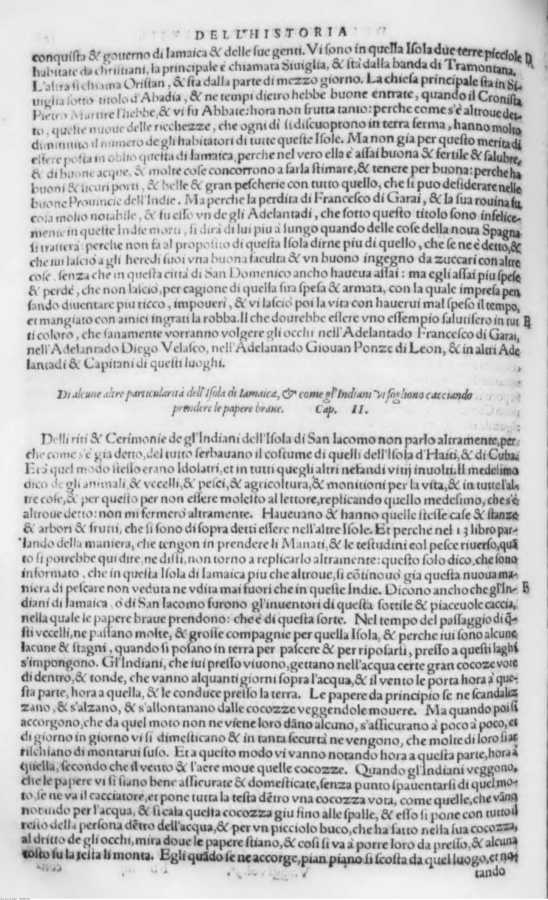 DELL'HISTORIA
conquista & gouerno di Iamaica & delle sue genti. Vi sono in quella Isola due terre picciole D
habitate da christiani, la principale è chiamata Siuiglia, & sta dalla banda di Tramontana.
L'altra si chiama Oristan, & sta dalla parte di mezzo giorno. La chiesa principale sta in Si-
uiglia sotto titolo d'Abadia, & ne tempi dietro hebbe buone entrate, quando il Cronista
Pietro Martire l'hebbe, & vi fu Abbate: hora non frutta tanto: perche come s'è altroue det-
to, queste nuoue delle ricchezze, che ogni dì si discuoprono in terra ferma, hanno molto
diminuito il numero de gli habitatori di tutte queste Isole. Ma non già per questo merita di
essere posta in oblio questa di Iamaica, perche nel vero ella è assai buona & fertile & salubre,
& di buone acque, & molte cose concorrono a farla stimare, & tenere per buona: perche ha
buoni & sicuri porti, & belle & gran pescherie con tutto quello, che si puo desiderare nelle
buone Prouincie dell'Indie. Ma perche la perdita di Francesco di Garai, & la sua rouina fu
cosa molto notabile, & fu esso vn de gli Adelantadi, che sotto questo titolo sono infelice-
mente in queste Indie morti, si dirà di lui piu a lungo quando delle cose della noua Spagna
si trattera: perche non fa al proposito di questa Isola dirne piu di quello, che se ne è detto, &
che iui lasciò a gli heredi suoi vna buona facultà & vn buono ingegno da zuccari con altre
cose, senza che in questa città di San Domenico ancho haueua assai: ma egli assai piu spese
& perdè, che non lasciò, per cagione di quella sua spesa & armata, con la quale impresa pen-
sando diuentare piu ricco, impouerì, & vi lasciò poi la vita con hauerui mal speso il tempo,
et mangiato con amici ingrati la robba. Il che dourebbe essere vno essempio salutifero in tut E
ti coloro, che sanamente vorranno volgere gli occhi nell'Adelantado Francesco di Garai,
nell'Adelantado Diego Velasco, nell'Adelantado Giouan Ponze di Leon, & in altri Ade-
lantadi & Capitani di questi luoghi.
Di alcune altre particularità dell'Isola di Iamaica, & come gl'Indiani vi sogliono cacciando
prendere le papere braue. Cap. II.
Delli riti & Cerimonie de gl'Indiani dell'Isola di San Iacomo non parlo altramente, per-
che come s'è già detto, del tutto serbauano il costume di quelli dell'Isola d'Haiti, & di Cuba.
Et à quel modo stesso erano Idolatri, et in tutti quegli altri nefandi vitij inuolti. Il medesimo
dico de gli animali, & vccelli, & pesci, & agricoltura, & monitioni per la vita, & in tutte l'al-
tre cose, & per questo per non essere molesto al lettore, replicando quello medesimo, che s'è
altroue detto: non mi fermerò altramente. Haueuano & hanno quelle stesse case & stanze
& arbori & frutti, che si sono di sopra detti essere nell'altre Isole. Et perche nel 13 libro par-
lando della maniera, che tengon in prendere li Manati, & le testudini col pesce riuerso, quā
to si potrebbe qui dire, ne dissi, non torno a replicarlo altramente: questo solo dico, che sono
informato, che in questa Isola di Iamaica piu che altroue, si cōtinouò già questa nuoua ma-
niera di pescare non veduta ne vdita mai fuori che in queste Indie. Dicono ancho che gl'In- F
diani di Iamaica, ò di San Iacomo furono gl'inuentori di questa sottile & piaceuole caccia,
nella quale le papere braue prendono: che è di questa sorte. Nel tempo del passaggio di q̄-
sti vccelli, ne passano molte, & grosse compagnie per quella Isola, & perche iui sono alcune
lacune & stagni, quando si posano in terra per pascere & per riposarsi, presso a questi laghi
s'impongono. Gl'Indiani, che iui presso viuono, gettano nell'acqua certe gran cocozze vote
di dentro, & tonde, che vanno alquanti giorni sopra l'acqua, & il vento le porta hora a que-
sta parte, hora a quella, & le conduce presso la terra. Le papere da principio se ne scandalez
zano, & s'alzano, & s'allontanano dalle cocozze veggendole mouere. Ma quando poi si
accorgono, che da quel moto non ne viene loro dāno alcuno, s'assicurano à poco à poco, et
di giorno in giorno vi si dimesticano & in tanta securtà ne vengono, che molte di loro s'ar-
rischiano di montarui suso. Et a questo modo vi vanno notando hora a questa parte, hora à
quella, secondo che il vento & l'aere moue quelle cocozze. Quando gl'Indiani veggono,
che le papere vi si siano bene assicurate & domesticate, senza punto spauentarsi di quel mo-
to, se ne va il cacciatore, et pone tutta la testa dētro vna cocozza vota, come quelle, che vāno
notando per l'acqua, & si cala questa cocozza giu fino alle spalle, & esso si pone con tutto il
resto della persona dētro dell'acqua, & per vn picciolo buco, che ha fatto nella sua cocozza,
al dritto de gli occhi, mira doue le papere stiano, & così si va à porre loro da presso, & alcuna
tosto su la testa li monta. Egli quādo se ne accorge, pian piano si scosta da quel luogo, et no-
tando